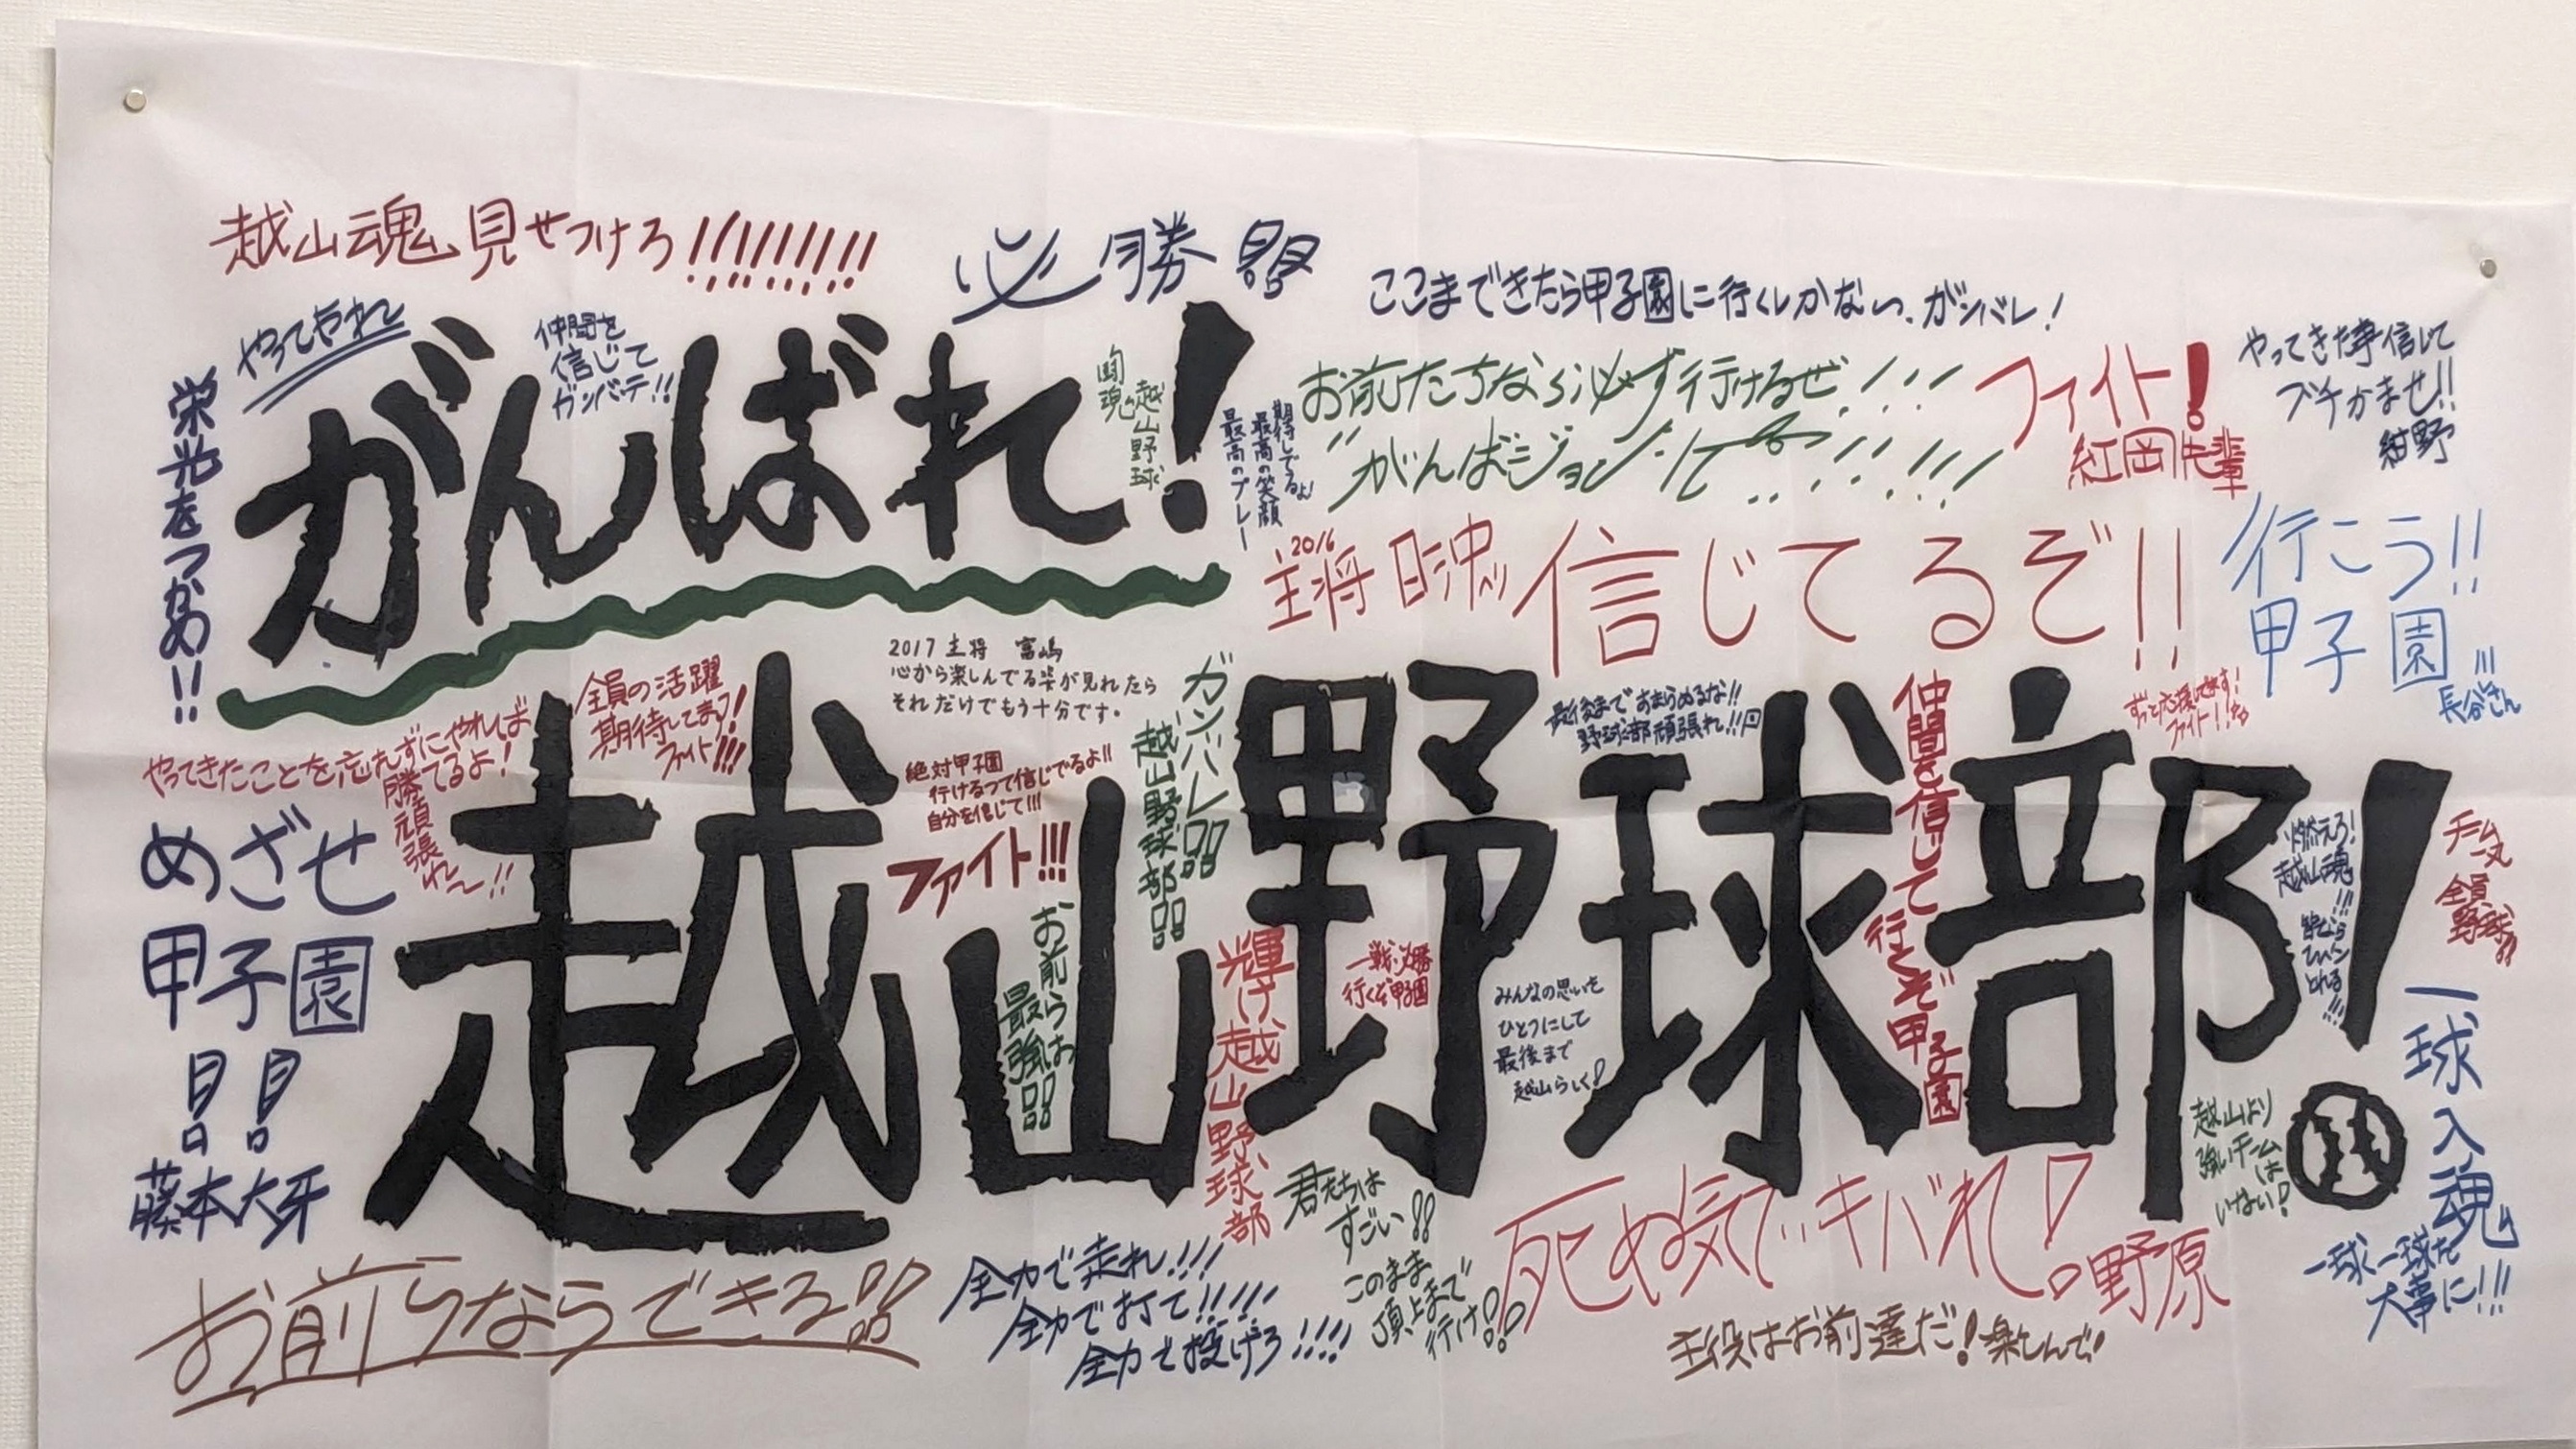 越山魂見せつけろ!!!!!!!!!
必勝!!
ここまできたら甲子園に行くしかないっ.ガンバレ!
やってやれ
仲間を
信じて
ガンバテ!!
栄光をつかめ!!
がんばれ!
越山野球
闘魂
期待してるよ!
最高の笑顔
最高のプレー
お前たちなら必ず行けるぜ!!!
ファイト!
紅岡先輩
やってきた事信じて
ブチかませ!!
紺野
2016
主将
信じてるぞ!!
行こう!!
甲子園!!!
長谷さん
2017 主将 富嶋
心から楽しんでる姿が見れたら
それだけでもう十分です。
全員の活躍
期待してまっす!
ファイト!!!
やってきたことを忘れずにやれば
勝てるよ!
頑張れ〜!!
絶対甲子園
行けるって信じでるよ!!
自分を信じて!!!
ファイト!!!
ガンバレ!!
越山野球部!!
野球部頑張れ!!
仲間を信じて
行くぞ甲子園
ずっと応援してます!
ファイト!!
越山野球部!
めざせ
甲子園
!!
藤本大牙
お前らは
最強!!
輝け越山野球部
一戦必勝
行くぞ甲子園
みんなの思いを
ひとつにして
最後まで
越山らしく!
燃えろ!
越山魂!!!
チーム
一丸
全員
野球!!
一球入魂
越山より
強いチーム
は
いない!
一球一球を
大事に!!!
君たちは
すごい!!
このまま
頂上まで
行け!!
死ぬ気でキバれ!
野原
お前らならできる!!
全力で走れ!!!
全力で打て!!!!!
全力で投げろ!!!!
主役はお前達だ!楽しんで!